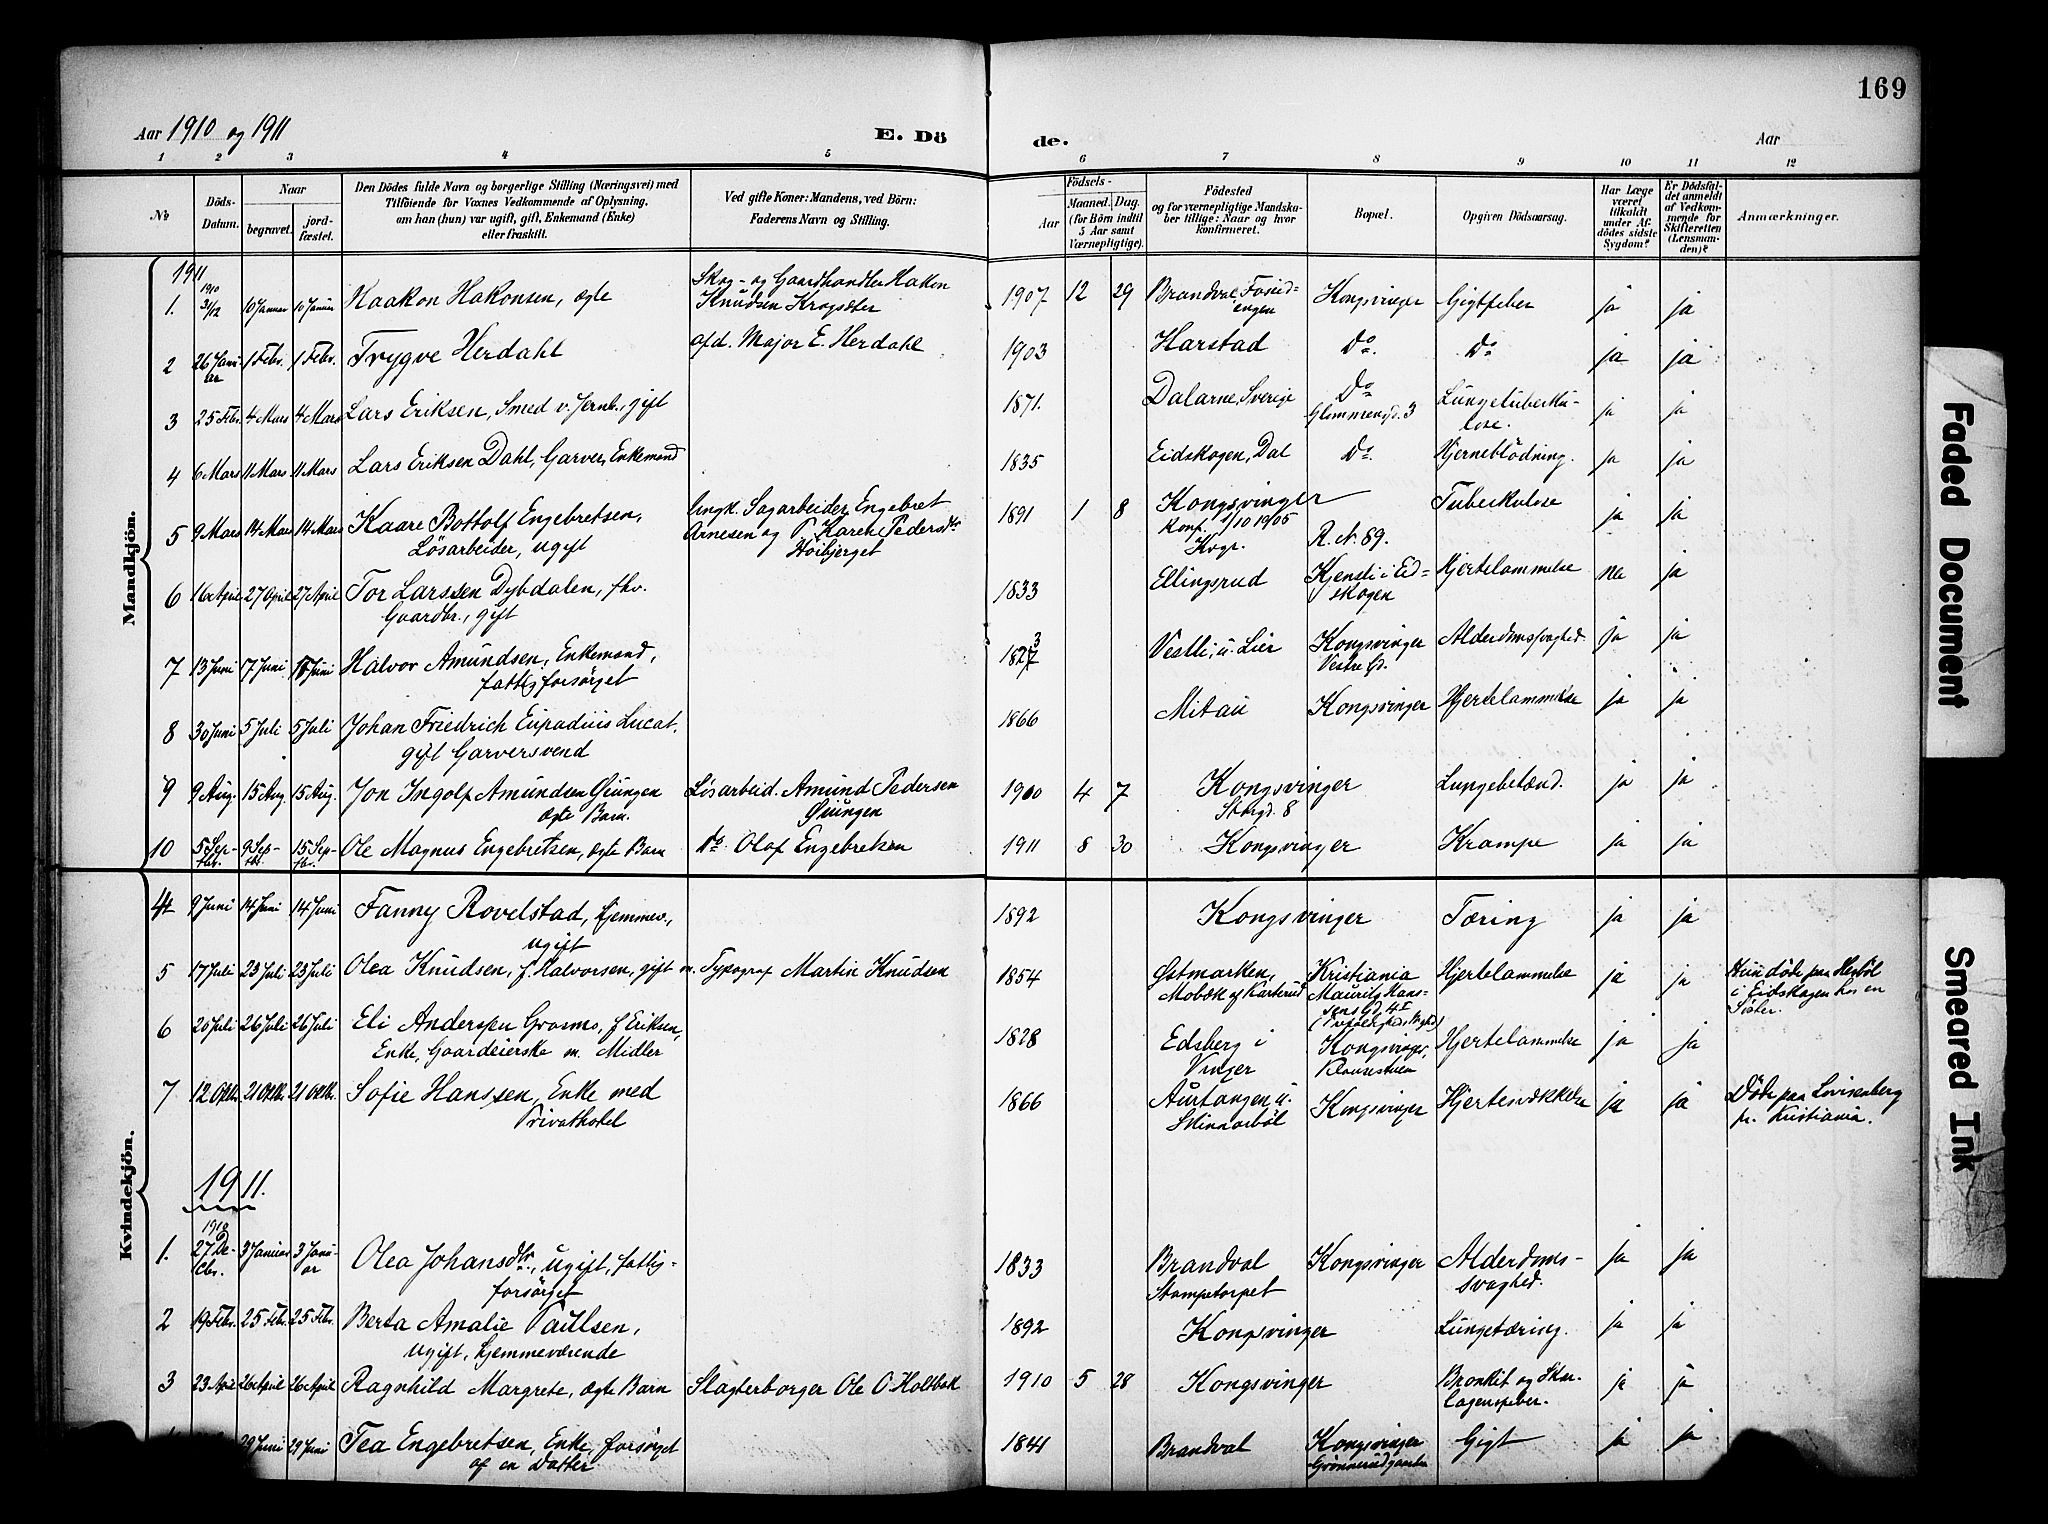 169
Aar 1910 og 1911
E. Dö
de.
Aar
1 2 3 4 5 6 7 8 9 10 11 12
No
Döds-
Datum.
Naar
begravet.
jord-
fæstet.
Den Dödes fulde Navn og borgerlige Stilling (Næringsvei) med
Tilföiende for Voxnes Vedkommende af Oplysning,
om han (hun) var ugift, gift, Enkemand (Enke)
eller fraskilt.
Ved gifte Koner: Mandens, ved Börn:
Faderens Navn og Stilling.
Födsels-
Aar
Maaned.
Dag.
(for Börn indtil
5 Aar samt
Værnepligtige).
Födested
og for værnepligtige Mandska-
ber tillige: Naar og hvor
konfirmeret.
Bopæl.
Opgiven Dödsaarsag.
Har Læge
været
tilkaldt
under Af-
dödes sidste
Sygdom?
Er Dödsfal-
det anmeldt
af Vedkom-
mende for
Skifteretten
(Lensman-
den)?
Anmærkninger.
Mandkjön.
1911
1. 1910 31/12 10 Januar 10 Januar Haakon Hakonsen, ægte
Skog- og Gaardhandler Hakon
Knudsen Krogsæter
1907 12 29 Brandval, Kongsvinger Gigtfeber ja ja
2 26 Janu-
ar 1 Febr. 1 Febr. Trygve Herdahl afd. Major E. Herdahl 1903 Harstad Do. Do ja ja
3 25 Febr. 4 Mars 4 Mars Lars Eriksen, Smed v. Jernb., gift 1871. Dalarne, Sverige Do
Glommengd. 3 Lungetuberku-
lose. ja ja
4 6 Mars 11 Mars 11 Mars Lars Eriksen Dahl, Garver, Enkemand 1835 Eidskogen, Dal Do. Hjerneblödning. ja ja
5 9 Mars 14 Mars 14 Mars Kaare Bottolf Engebretsen,
Løsarbeider, ugift
Ungk. Sagarbeider Engebret
Arnesen og P. Karen Pedersdtr
Høibjerget
1891 1 8 Kongsvinger
Konf. 1/10 1905
Kvgr. R. N. 89. Tuberkulose ja ja
6 16 April 27 April 27 April Tor Larssen Dybdalen, fhv.
Gaardbr., gift 1833 Ellingsrud Kjensli i Eid=
skogen Hjertelammelse nei ja
7 13 Juni 17 Juni 17 Juni Halvor Amundsen, Enkemand,
fattigforsørget 1827 3 Vestli, u. Lier Kongsvinger
Vestre Gd. Alderdomssvaghed. ja ja
8 30 Juni 5 Juli 5 Juli Johan Friedrich Lucat,
gift Garversvend 1866 Mitau Kongsvinger Hjertelammelse ja ja
9 9 Aug. 15 Aug. 15 Aug. Jon Ingolf Amundsen Øiungen
ægte Barn. Løsarbeid. Amund Pedersen
Øiungen 1900 4 7 Kongsvinger
Storgd. 8 Lungebetænd. ja ja
10 5 Sep-
tbr. 9 Sep-
tbr. 15 Sep-
tbr. Ole Magnus Engebretsen, ægte Barn do Olaf Engebretsen 1911 8 30 Kongsvinger Krampe ja ja
Kvindekjön.
4 9 Juni 14 Juni 14 Juni Fanny Rovelstad, hjemmev.,
ugift 1892 Kongsvinger Tæring ja ja
5 17 Juli 23 Juli 23 Juli Olea Knudsen, f. Halvorsen, gift m. Typograf Martin Knudsen 1854 Østmarken,
Mobæk af Karterud Kristiania
Mauritz Hans=
sens Gd. 4 I Hjertelammelse ja ja Hun døde paa
i Eidskogen hos en
Søster.
6 20 Juli 26 Juli 26 Juli Eli Andersen Grasmo, f. Eriksen,
Enke, Gaardeierske m. Midler 1828 Edsberg i
Vinger Kongsvinger, Hjertelammelse ja ja
7 12 Oktbr. 21 Oktbr. 21 Oktbr. Sofie Hanssen, Enke med
Privathotel 1866 Aurtangen u.
Skinnarböl Kongsvinger Hjertesvækkelse ja ja Døde paa Lovisenberg
pr. Kristiania.
1911.
1. 1910
27 De-
cbr. 3 Januar 3 Janu-
ar Olea Johansdtr., ugift, fattig=
forsørget 1833 Brandval
Stampetorpet Kongsvinger Alderdoms-
svaghed. ja ja
2 19 Febr. 25 Febr. 25 Febr. Berta Amalie Paulsen,
ugift, hjemmeværende 1892 Kongsvinger Lungetæring. ja ja
3 23 April 26 April 26 April Ragnhild Margrete, ægte Barn Slagterborger Ole O. Holtbak 1910 5 28 Kongsvinger Bronkit og Skar-
lagensfeber. ja ja
29 Juni 29 Juni Tea Engebretsen, Enke, forsørget
af en Datter 1841 Brandval Kongsvinger
Grønnerudgaarden Gigt ja ja
Faded Document
Smeared Ink